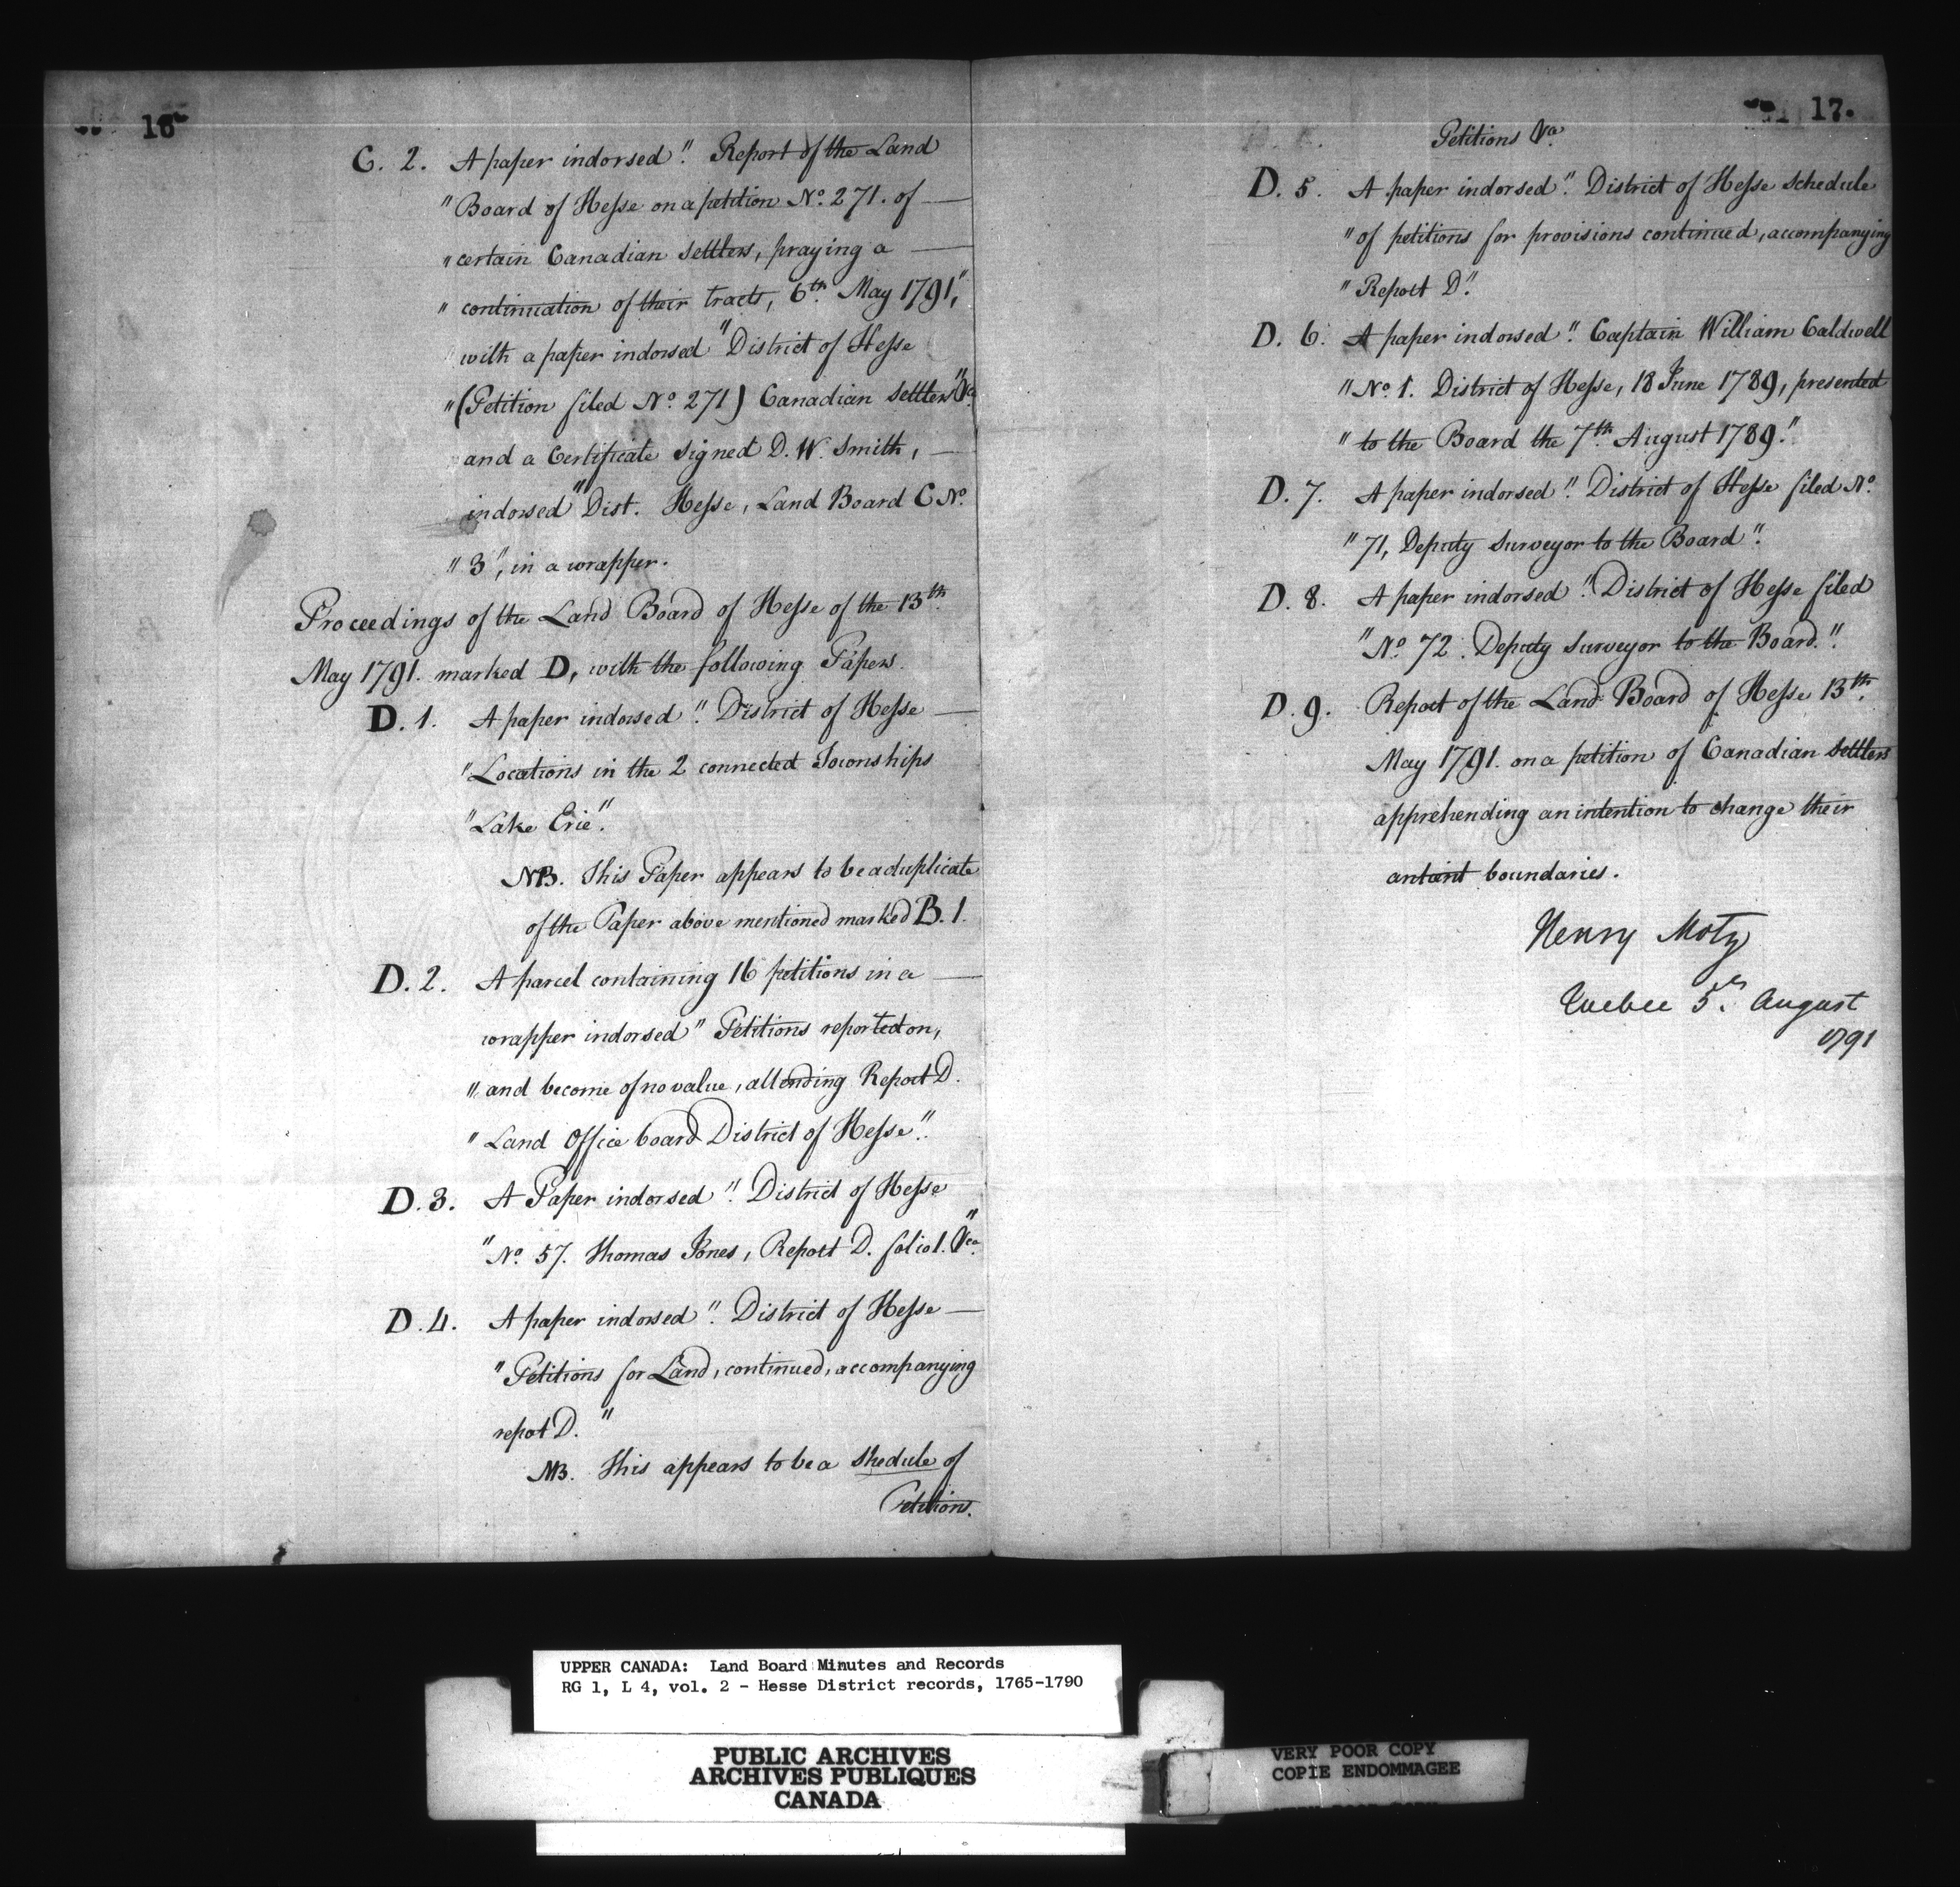 16
C. 2. A paper indorsed "Report of the Land
"Board of Hesse on a petition No. 271. of —
"certain Canadian settlers, praying a —
"continuation of their tracts, 6th. May 1791,"
with a paper indorsed "District of Hesse
"(Petition filed No. 271) Canadian settlers" &ca.
and a Certificate signed D. W. Smith, —
indorsed "Dist. Hesse, Land Board C No.
"3", in a wrapper.
Proceedings of the Land Board of Hesse of the 13th.
May 1791. marked D, with the following Papers.
D. 1. A paper indorsed "District of Hesse —
"Locations in the 2 connected Townships
"Lake Erie".
NB. This Paper appears to be a duplicate
of the Paper above mentioned marked B. 1.
D. 2. A parcel containing 16 petitions in a —
wrapper indorsed "Petitions reported on,
"and become of no value, attending Report D.
"Land Office board District of Hesse".
D. 3. A Paper indorsed "District of Hesse
"No. 57. Thomas Jones, Report D. folio 1. &ca"
D. 4. A paper indorsed "District of Hesse —
"Petitions for Land, continued, accompanying
repot D."
NB. This appears to be a shedule of
Petitions.
17.
Petitions &ca.
D. 5. A paper indorsed "District of Hesse schedule
"of petitions for provisions continued, accompanying
"Report D".
D. 6. A paper indorsed "Captain William Caldwell
"No. 1. District of Hesse, 18 June 1789, presented
"to the Board the 7th. August 1789."
D. 7. A paper indorsed "District of Hesse filed No.
"71, Deputy surveyor to the Board".
D. 8. A paper indorsed "District of Hesse filed
"No. 72. Deputy surveyor to the Board."
D. 9. Report of the Land Board of Hesse 13th.
May 1791. on a petition of Canadian settlers
apprehending an intention to change their
antient boundaries.
Henry Motz
Quebec 5th. August
1791
UPPER CANADA: Land Board Minutes and Records
RG 1, L 4, vol. 2 - Hesse District records, 1765-1790
PUBLIC ARCHIVES
ARCHIVES PUBLIQUES
CANADA
VERY POOR COPY
COPIE ENDOMMAGEE